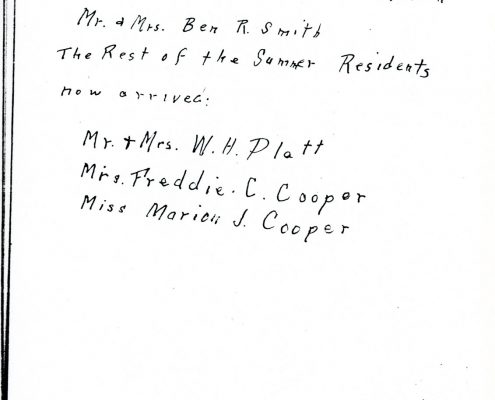 Mr. & Mrs. Ben R. Smith
The Rest of the Summer Residents
now arrived:
Mr. + Mrs. W. H. Platt
Mrs. Freddie. C. Cooper
Miss Marion J. Cooper